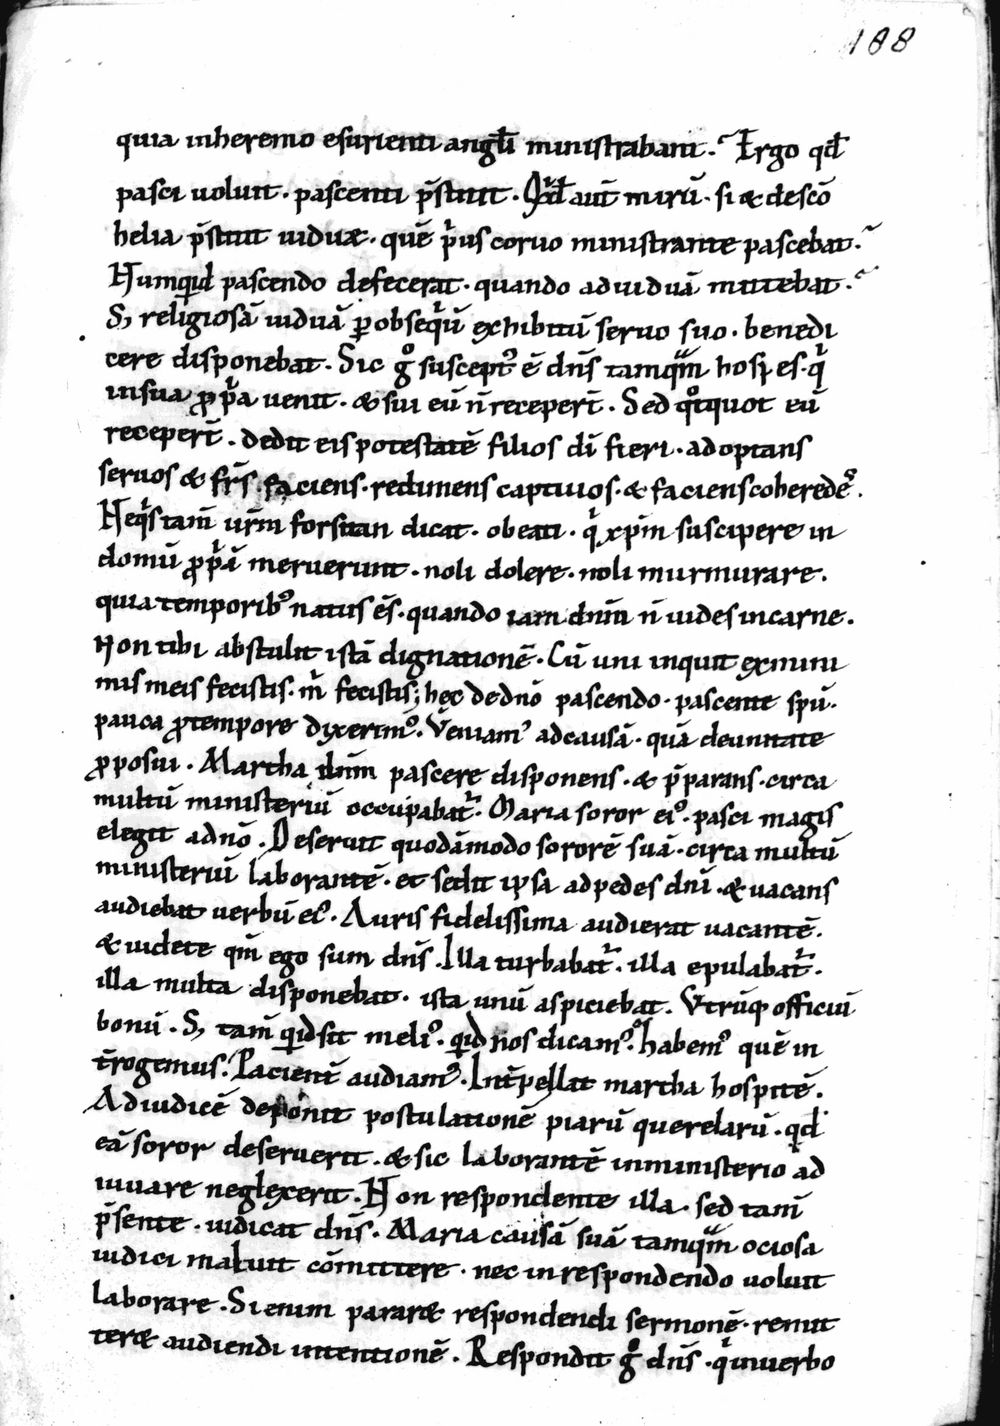 188
quia inheremo esurienti angl̄i ministrabant. Ergo qđ
pasci uoluit · pascenti p̄stitit · Qđ aut̄ mirū · si & descō
helia p̄stitit uiduæ · quē p̍us coruo ministrante pascebat.
Numquid pascendo defecerat · quando aduiduā mittebat.
S; religiosā uiduā p obseq̍ū exhibitū seruo suo · benedi
cere disponebat. Sic gͦ suscept᾽ ē dn̄s tamquā hospes · q̍
insua ꝓp̍a uenit · & sui eū n̄ recepert̄. Sed qͦtquot eū
recepert̄ · dedit eis potestatē filios dī fieri · adoptans
seruos & fr̄s faciens · redimens captiuos · & faciens coherede᾽.
Neq̍s tam̄ ur̄m forsitan dicat · o beati · q̍ xp̄m suscipere in
domū ꝓp̍ā meruerunt · noli dolere · noli murmurare.
quia temporib᾽ natus ēs · quando iam dn̄m n̄ uides incarne.
Non tibi abstulit istā dignationē. Cū uni inquit exmini
mis meis fecistis · m̍ fecistis; hec de dnō pascendo · pascente spū ·
pauca ꝓtempore dyxerim᾽. Veniam᾽ adcausā · quā deunitate
ꝓposui. Martha dn̄m pascere disponens · & p̄parans · circa
multū ministeriū occupabat̍. Maria soror ei᾽ · pasci magis
elegit adnō. Deseruit quodāmodo sororē suā · circa multū
ministeriū laborantē · et sedit ipsa ad pedes dnī · & uacans
audiebat uerbū ei᾽. Auris fidelissima audierat uacantē.
& uidete qm̄ ego sum dn̄s. Illa turbabat̍ · illa epulabat̍.
illa multa disponebat · ista unū aspiciebat. Vtrūq officiū
bonū. S; tam̄ quid sit meli᾽ · quid nos dicam᾽. habem᾽ quē in
t̄rogemus. Pacient̄ audiam᾽. Int̄pellat martha hospitē.
Adiudicē deponit postulationē piarū querelarū · qđ
eā soror deseruerit · & sic laborantē inministerio ad
iuuare neglexerit. Non respondente illa · sed tam̄
p̄sente · iudicat dn̄s. Maria causā suā tamquā ociosa
iudici maluit cōmittere · nec in respondendo uoluit
laborare. Si enim pararæ respondendi sermonē · remit
teræ audiendi intentionē. Respondit gͦ dn̄s · q̍ inuerbo